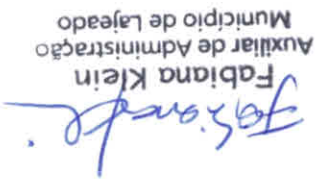 Fabiana Klein
Auxiliar de Administração
Município de Lajeado